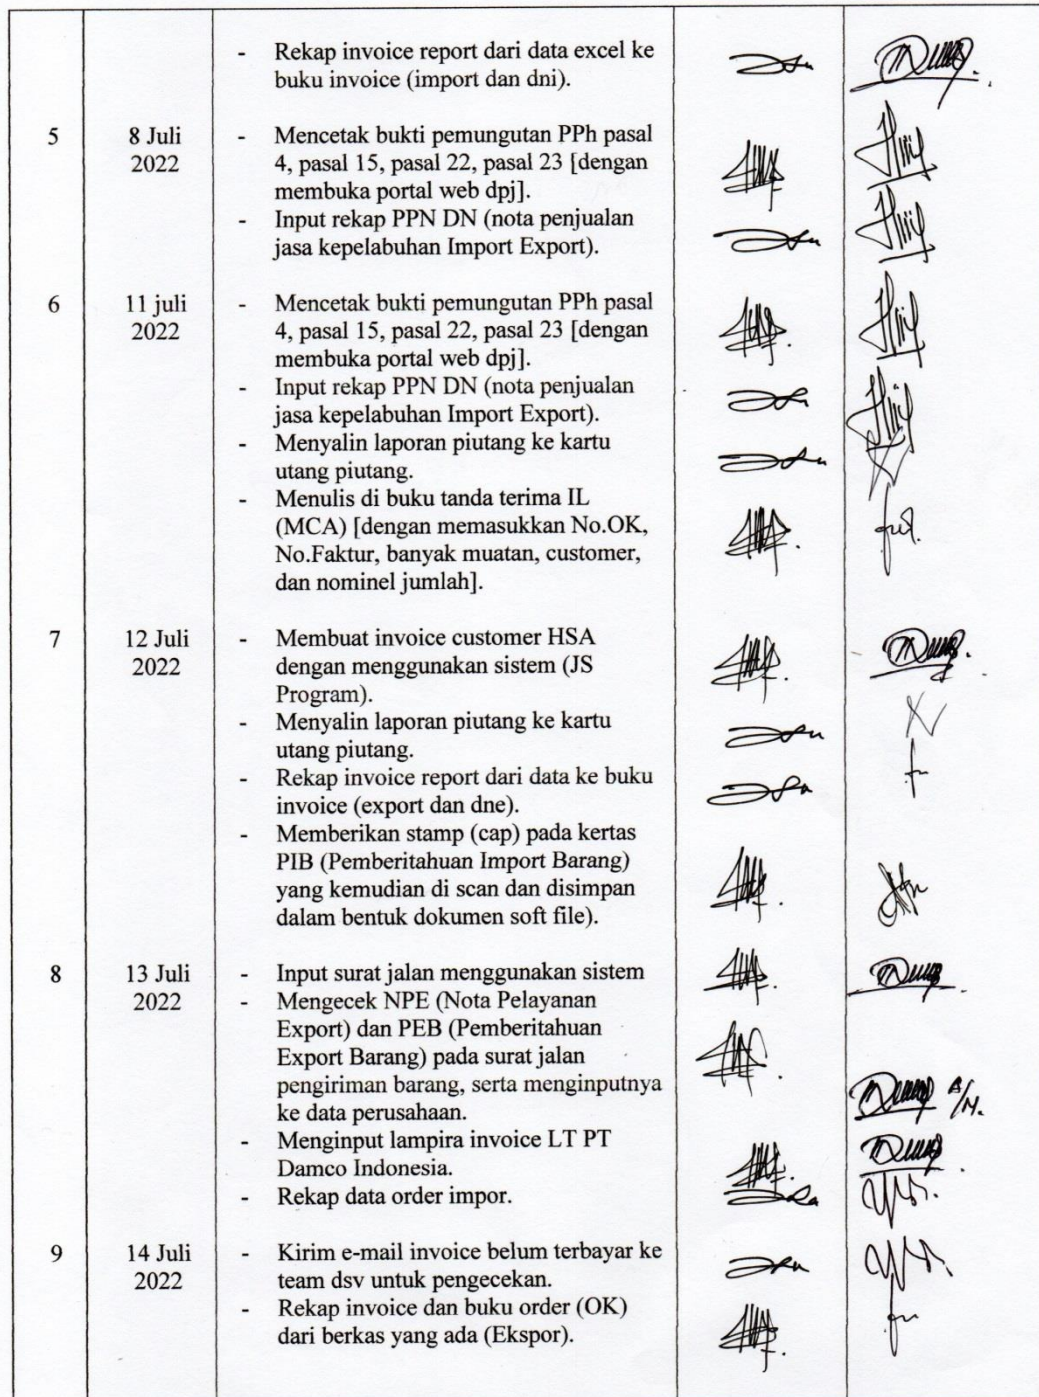 - Rekap invoice report dari data excel ke
buku invoice (import dan dni).
5 8 Juli - Mencetak bukti pemungutan PPh pasal
2022 4, pasal 15, pasal 22, pasal 23 [dengan
membuka portal web dpj].
- Input rekap PPN DN (nota penjualan
jasa kepelabuhan Import Export).
6 11 juli - Mencetak bukti pemungutan PPh pasal
2022 4, pasal 15, pasal 22, pasal 23 [dengan
membuka portal web dpj].
- Input rekap PPN DN (nota penjualan
jasa kepelabuhan Import Export).
- Menyalin laporan piutang ke kartu
utang piutang.
- Menulis di buku tanda terima IL
(MCA) [dengan memasukkan No.OK,
No.Faktur, banyak muatan, customer,
dan nominel jumlah].
7 12 Juli - Membuat invoice customer HSA
2022 dengan menggunakan sistem (JS
Program).
- Menyalin laporan piutang ke kartu
utang piutang.
- Rekap invoice report dari data ke buku
invoice (export dan dne).
- Memberikan stamp (cap) pada kertas
PIB (Pemberitahuan Import Barang)
yang kemudian di scan dan disimpan
dalam bentuk dokumen soft file).
8 13 Juli - Input surat jalan menggunakan sistem
2022 - Mengecek NPE (Nota Pelayanan
Export) dan PEB (Pemberitahuan
Export Barang) pada surat jalan
pengiriman barang, serta menginputnya
ke data perusahaan.
- Menginput lampira invoice LT PT
Damco Indonesia.
- Rekap data order impor.
9 14 Juli - Kirim e-mail invoice belum terbayar ke
2022 team dsv untuk pengecekan.
- Rekap invoice dan buku order (OK)
dari berkas yang ada (Ekspor).